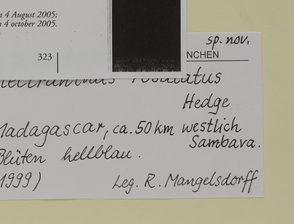 4 August 2005;
4 october 2005.
323
sp. nov.
NCHEN
Hedge
Madagascar, ca. 50 km westlich
Sambava.
Blüten hellblau.
1999)
Leg. R. Mangelsdorff